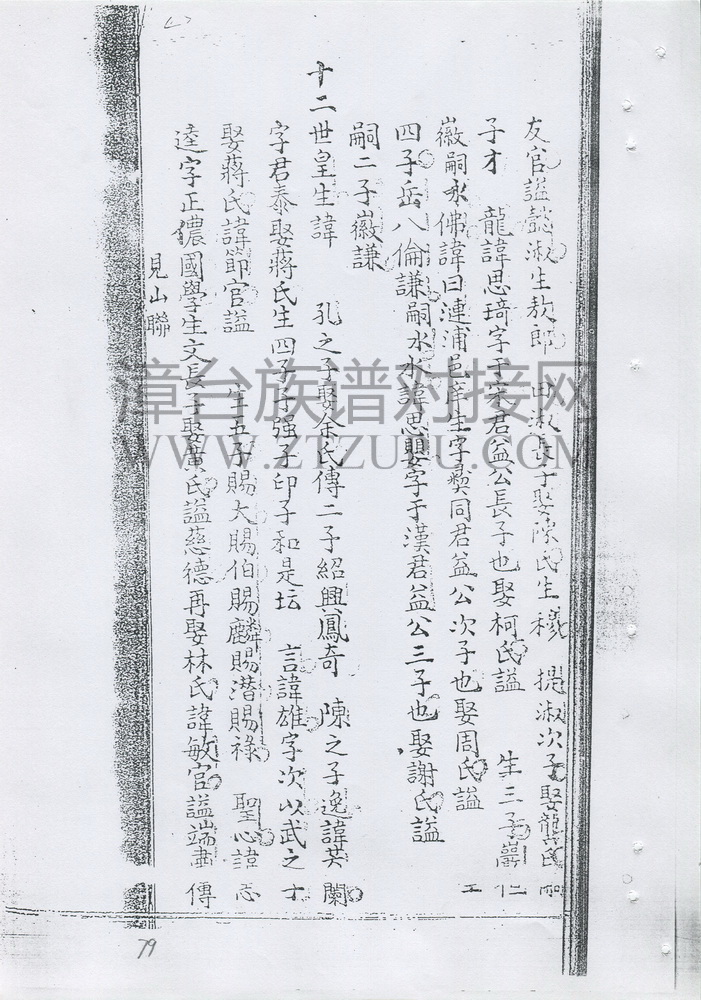 友官諡懿淑生教郎 田淑長子娶陳氏生穟 提淑次子娶龔氏
子才 龍諱思琦字于宋君益公長子也娶柯氏諡 生三子
徽嗣永佛諱曰漣浦邑庠生字奠同君益公次子也娶周氏諡
四子岳八倫謙嗣水水諱思顯字于漢君益公三子也娶謝氏諡
嗣二子徽謙
十二世皇生諱 孔之子娶余氏傳二子紹興鳳奇 陳之子逸諱英蘭
字君泰娶蔣氏生四子子强子印子和是坛 言諱雄字次以武之子
娶蔣氏諱節官諡 生五子賜大賜伯賜麟賜潛賜祿 聖心諱志
逵字正儂國學生文長子娶黃氏諡慈德再娶林氏諱敏官諡端肅傳
見山聯
漳台族谱对接网
WWW.ZTZUPU.COM
79